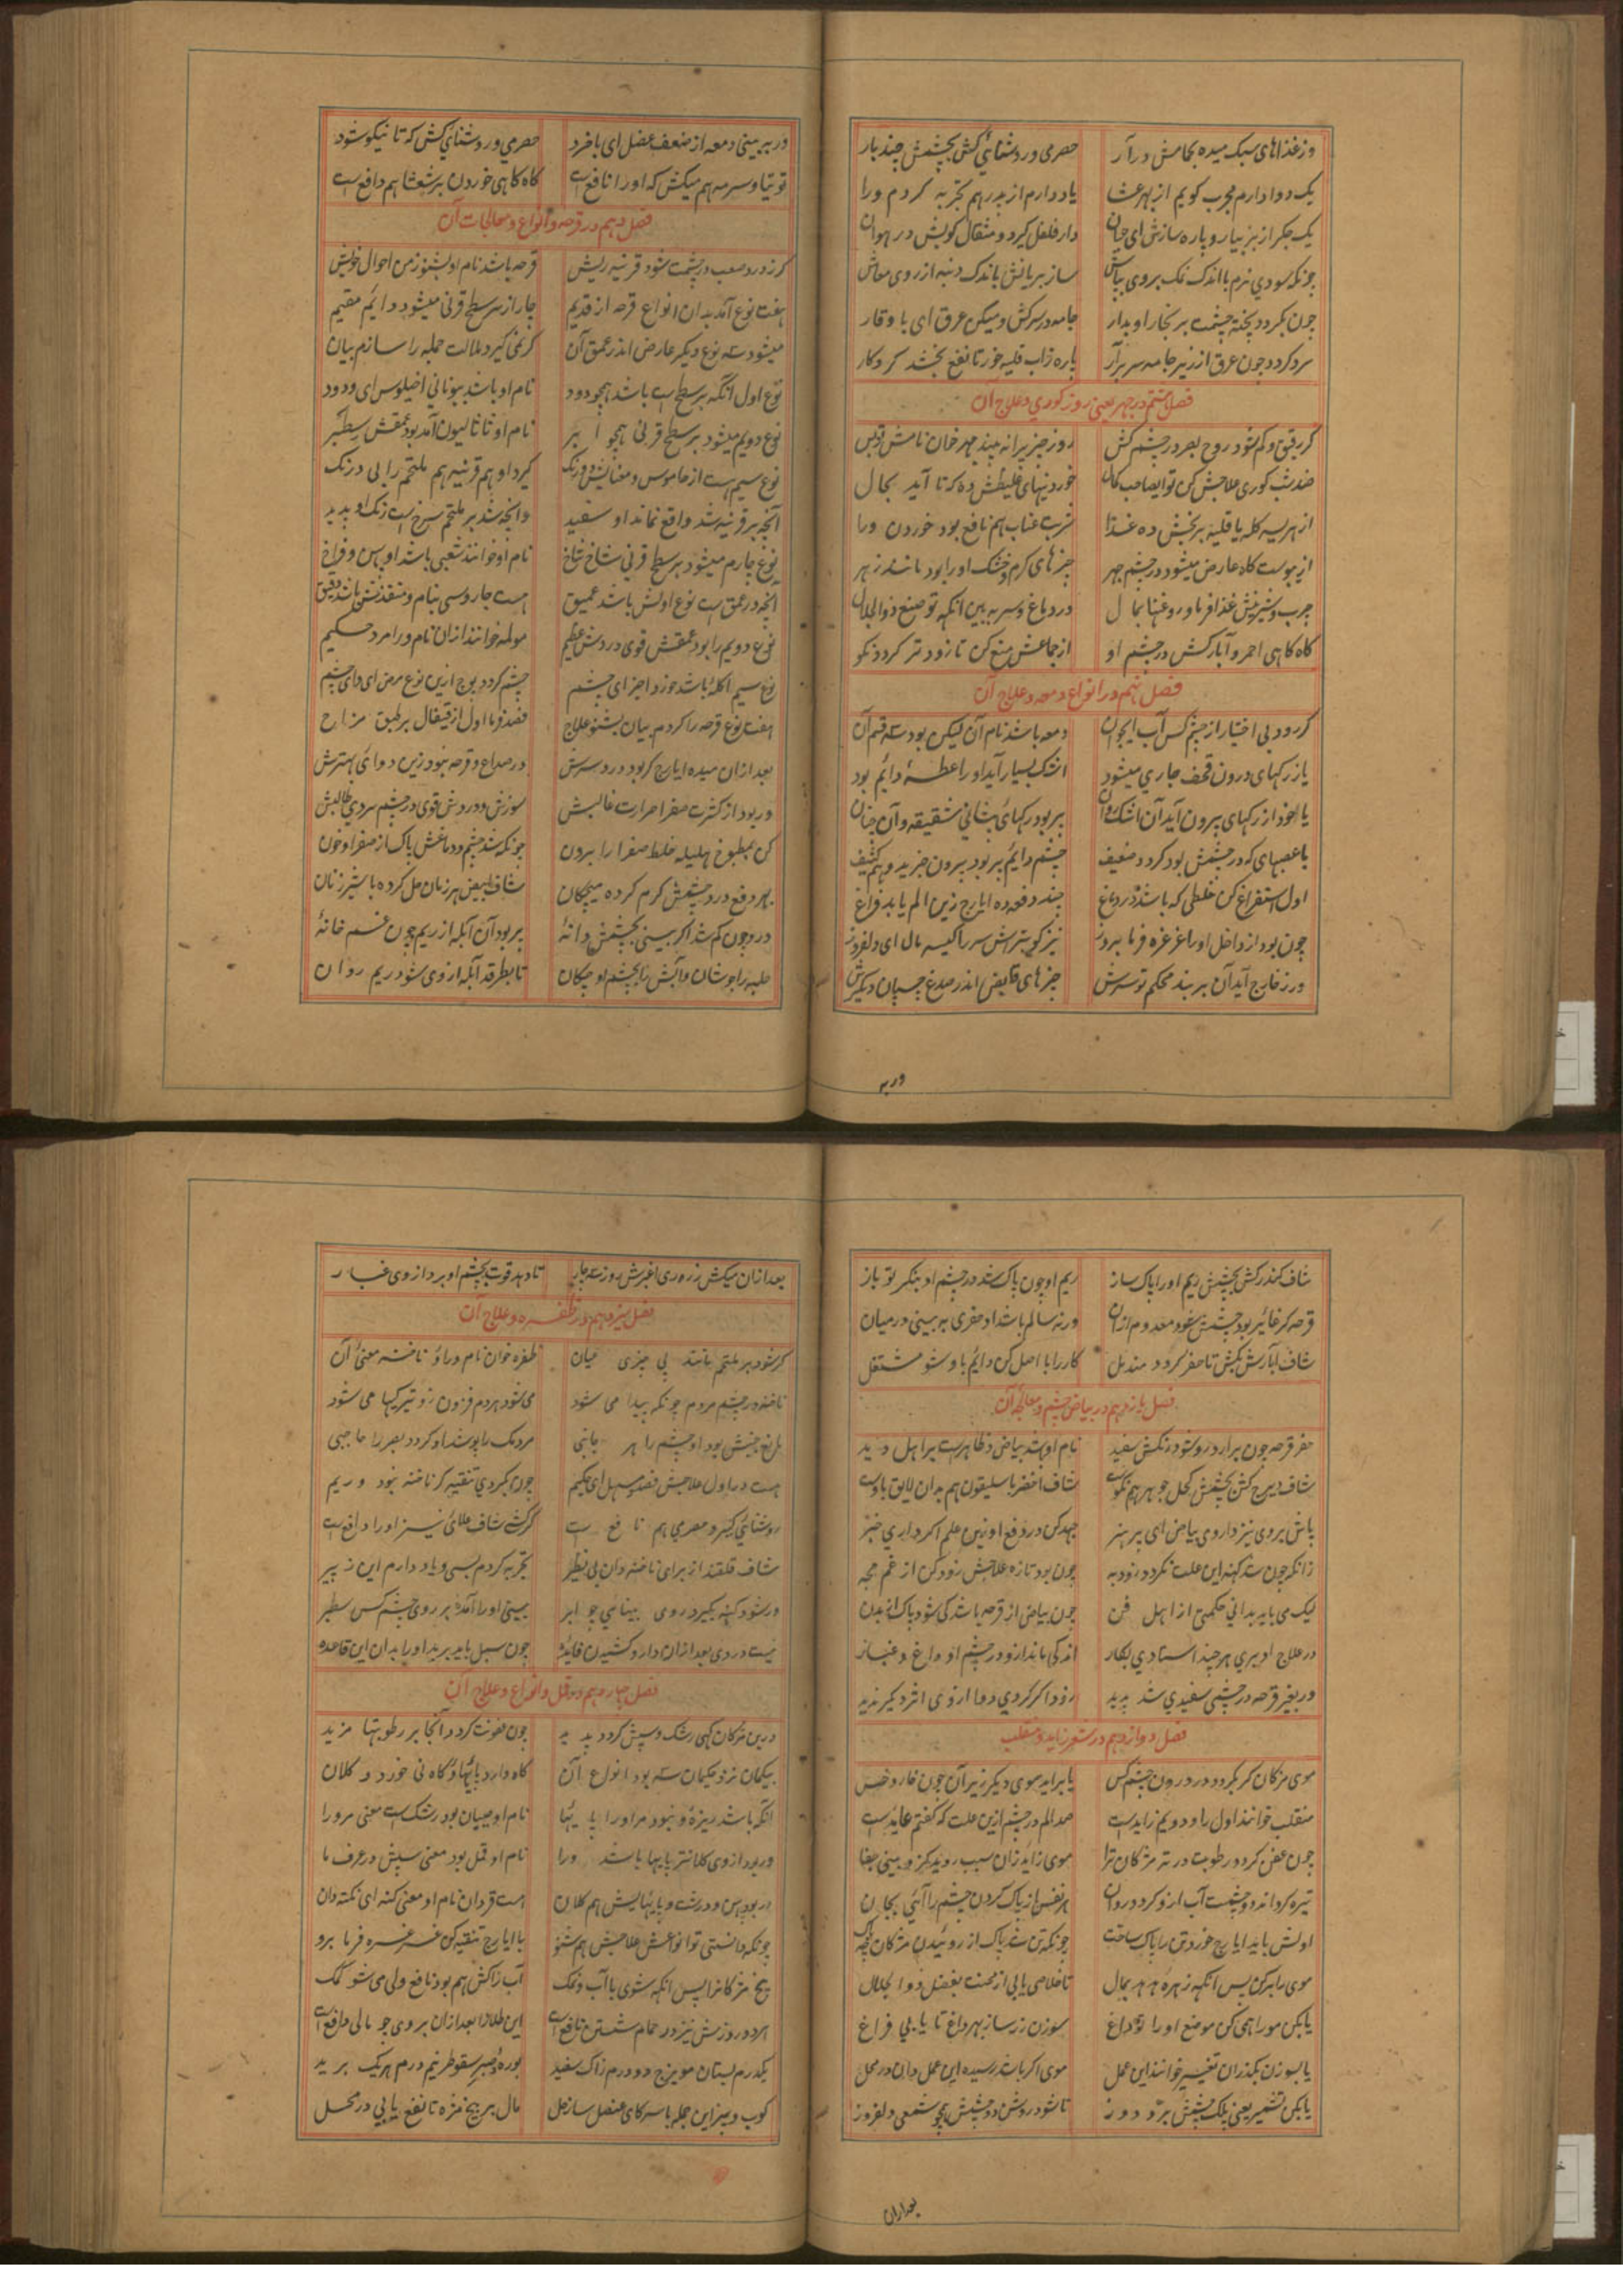 وز غذاهای سبک میده بکامش در آر حصرمی و روشنائی کش بچشمش چند بار
یک دوا دارم مجرب کویم از بهر عشا یاد دارم از پدر هم تجربه کردم ورا
یک جکر از بز بیار و پاره سازش ای جوان دار فلفل کیرد و مثقال کوبش در هوان
چونکه سودی نرم با اندک نمک بروی بپاش ساز بریانش باندک دنبه از روی معاش
چون بکردد پخته چشمت بر بخار او بدار جامه در سر کش و میکن عرق ای با وقار
سرد کردد چون عرق از زیر جامه سر برآر پاره زاب قلیه خور تا نفع بخشد کردکار
فصل هشتم در جهر یعنی روز کوری و علاج آن
کر رقیق و کم شود روح بصر در چشم کش روز چیزی را نه بیند جهر خوان نامش
ضد شب کوری علاجش کن تو ایصاحب کمال خوردنیهای غلیظش ده که تا آید بحال
از هریسه کله یا قلیه برنجش ده غذا شربت عناب هم نافع بود خوردن ورا
از یبوست کاه عارض میشود در چشم جهر چیزهای کرم و خشک اورا بود مانند زهر
چرب و شیرینش غذا فرما و روغنها بمال در دماغ و سر به بین انکه تو صنع ذوالجلال
کاه کاهی احمر و آبار کش در چشم او از جماعش منع کن تا زودتر کردد نکو
فصل نهم در انواع دمعه و علاج آن
کر رود بی اختیار از چشم کس آب ایجوان دمعه باشد نام آن لیکن بود سه قسم آن
یا ز رکهای درون قحف جاری میشود اشک بسیار آید او را عطسهٔ دائم بود
یا خود از رکهای بیرون آید آن اشک روان پر بود رکهای پیشانی شقیقه و آن چنان
یا عصبهای که در چشمش بود کردد ضعیف چشم دایم پر بود بیرون
اول استفراغ کن خلطی که باشد در دماغ چند دفعه ده ایارج زین الم یابد فراغ
چون بود از داخل او را غرغره فرما بروز نیز کو بتراش سر را کیسه مال ای دلفروز
ور ز خارج آید آن بر بند محکم تو سرش چیزهای قابض اندر صدغ چسپان دیکرش
ور به
ور به پیری بینی دمعه از ضعف عضل ای با خرد حصرمی و روشنائی کش که تا نیکو شود
توتیا و سرمه هم میکش که او را نافع است کاه کاهی خوردن برشعثا هم دافع است
فصل دهم در قرحه و انواع و معالجات آن
کر ز درد صعب در چشمت شود قرنیه ریش قرحه باشد نام او بشنو ز من احوال خویش
هفت نوع آمد بدان انواع قرحه از قدیم چار از سر سطح قرنی میشود دایم مقیم
میشود سه نوع دیکر عارض اندر عمق آن کر نمی کیرد ملالت جمله را سازم بیان
نوع اول آنکه بر سطح است باشد همچو دود نام او باشد بیونانی اخیلوس ای ودود
نوع دویم میشود بر سطح قرنی همچو ابر نام او نانالیون آمد بود عمقش سطبر
نوع سیم هست کیرد او هم قرنیه هم ملتحم را بی درنک
آنچه بر قرنیه شد واقع نماند او سفید وانچه شد بر ملتحم سرخ است رنک او پدید
نوع چارم میشود بر سطح قرنی شاخ شاخ نام او خوانند شعبی باشد او پس و فراخ
آنچه در عمق است نوع اولش باشد عمیق هست
نوع دویم را بود عمقش قوی دردش عظیم مولمه خوانند از آن نام ورا مرد حکیم
نوع سیم اکله باشد خورد اجزای چشم چشم کردد پوچ ازین نوع مرض ای دای چشم
هفت نوع قرحه را کردم بیان بشنو علاج فصد فرما اول از قیفال بر طبق مزاج
بعد ازان میده ایارج کر بود درد سرش در صداع و قرحه نبود زین دوائی بهترش
ور بود از کثرت صفرا حرارت غالبش سوزش و دردش قوی در چشم سردی طالبش
کن بمطبوخ هلیله خلط صفرا را برون چونکه شد چشم و دماغش پاک از صفرا و خون
بهر دفع درد چشمش کرم کرده میچکان شاف ابیض هر زمان حل کرده با شیر زنان
درد چون کم شد اکر بینی بچشمش دانهٔ پر بود آن آبله از ریم چون غم خانهٔ
حلبه را جوشان و آبش را بچشم او چکان تا بطرقد آبله از وی شود ریم روان
شاف کندر کش بچشمش ریم او را پاک ساز ریم او چون پاک شد در چشم او بنکر تو باز
قرحه کر غائر بود چشمش شود معدوم ازان ورنه سالم باشد او حفری به بینی در میان
شاف آبارش بکش تا حفر کردد مندمل کار را با اصل کن دایم باو شو مشتغل
فصل یازدهم در بیاض چشم و معالجه آن
حفر قرحه چون برارد رو شود رنکش سفید نام او شد بیاض و ظاهرست بر اهل دید
شاف دیزج کش بچشمش کحل جوهر هم نکوست شاف اخضر باسلیقون هم بدان لایق باوست
پاش بروی نیز داروی بیاض ای پر هنر جهد کن در دفع او زین علم اکر داری خبر
زانکه چون شد کهنه این علت نکردد زود به چون بود تازه علاجش زود کن از غم بجه
لیک می باید بدانی حکمتی از اهل فن چون بیاض از قرحه باشد کی شود پاک از بدن
در علاج او بری هر چند استادی بکار اندکی ماند ازو در چشم او داغ و غبار
ور بغیر قرحه در چشمی سفیدی شد پدید زود اکر کردی دوا از وی اثر دیکر ندید
فصل دوازدهم در شعر زاید و منقلب
موی مژکان کر بکردد در درون چشم کس یا براید موی دیکر زیر آن چون خار و خس
منقلب خوانند اول را و دویم زایدست صد الم در چشم ازین علت که کفتم عایدست
چون عفن کردد رطوبت در ته مژکان ترا موی زاید زان سبب روید کژ و بینی جفا
تیره کرداند دو چشمت آب ازو کردد روان هر نفس از پاک کردن چشم را آئی بجان
اولش باید ایارج خورد تن را پاک ساخت چونکه تن شد پاک از روئیدن مژکان چه باک
موی را برکن پس آنکه زهره هدهد بمال تا خلاصی یابی از محنت بفضل ذوالجلال
یا بکن مو را همی کن موضع او را تو داغ سوزن زر ساز بهر داغ تا یابی فراغ
یا بسوزن بکذران تغییر خوانند این عمل موی اکر باشد رسیده این عمل دان در محل
یا بکن تشمیر یعنی پلک چشمش بر و دوز تا شود روشن دو چشمش همچو شمعی دلفروز
بعد ازان
بعد ازان میکش زروری اغبرش روز سه چار تا دهد قوت بچشم او برد از وی غبار
فصل سیزدهم در ظفره و علاج آن
کر شود بر ملتحم مانند پی چیزی عیان ظفره خوان نام ورا و ناخنه معنی آن
ناخنه در چشم مردم چونکه پیدا می شود می شود هر دم فزون زو تیرکیها می شود
مانع جنبش بود او چشم را هر جانبی مردمک را پوشد او کردد بصر را حاجبی
هست در اول علاجش فصد و سهل ای حکیم چون بکردی تنقیه کر ناخنه نبود وریم
روشنائی کیر و حصرمی هم نافع است کر کشی شاف طلائی نیز او را دافع است
شاف قلقند از برای ناخنه دان بی نظیر تجربه کردم بسی و یاد دارم این ز پیر
ور شود کهنه بکیرد روی بینائی چو ابر بینی او را آمده بر روی چشم کس سطبر
نیست در وی بعد ازان دارو کشیدن فایده چون سبل باید برید او را بدان این قاعده
فصل چهاردهم در قمل و انواع و علاج آن
در بن مژکان کهی رشک و سپش کردد پدید چون عفونت کردد آنجا بر رطوبتها مزید
بیکمان نزد حکیمان سه بود انواع آن کاه دارد پایها و کاه نی خورد و کلان
آنکه باشد ریزه و نبود مر او را پایها نام او صیبان بود رشک است معنی مر ورا
ور بود از وی کلانتر پایها باشد ورا نام او قمل بود معنی سپش در عرف ما
ور بود پس درشت و پایهایش هم کلان هست قردان نام او معنی کنه ای نکته دان
چونکه دانستی تو انواعش علاجش هم شنو با ایارج تنقیه کن غرغره فرما برو
بیخ مژکانرا پس آنکه شوی با آب و نمک آب زاک هم بود نافع ولی می شو کمک
هر دو روزش نیز در حمام شستن نافع است این طلا را بعد ازان بروی چو مالی دافع است
یکدرم بستان مویزج دو درم زاک سفید بوره و صبر سقوطر نیم درم هر یک برید
کوب و بیز این جمله با سرکای عنصل ساز حل مال بر بیخ مژه تا نفع یابی در محل